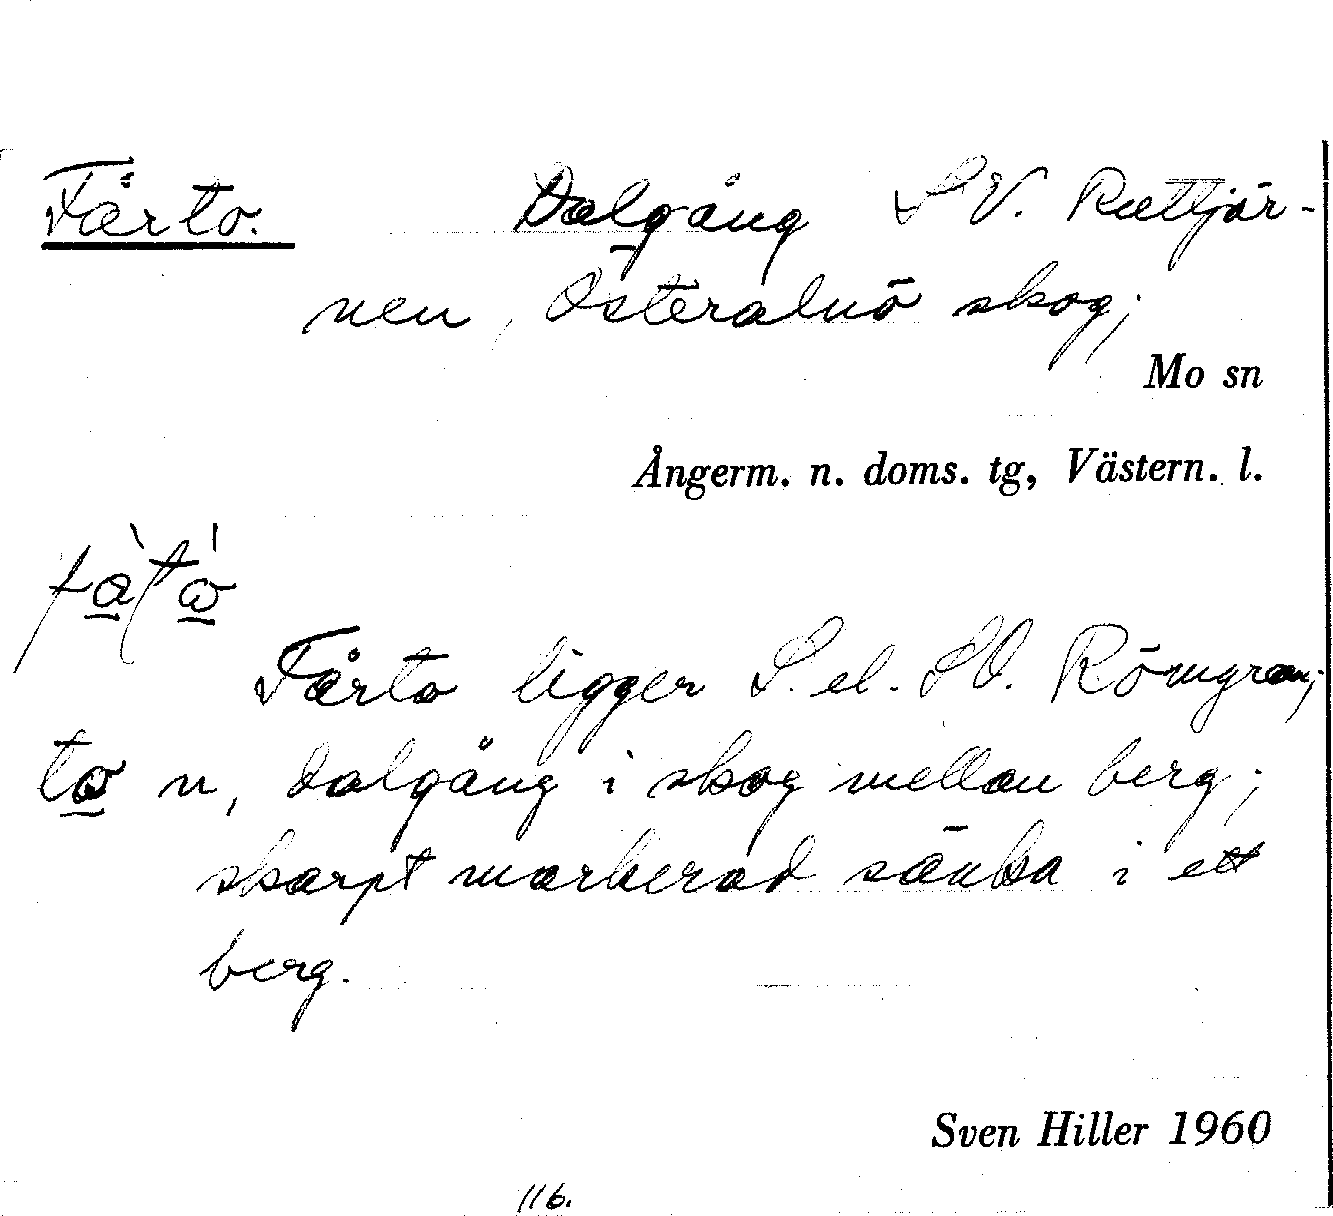 Fårto. Dalgång SV. Ruttjär-
nen, Österalnö skog;
Mo sn
Ångerm. n. doms. tg, Västern. l.
Fårto ligger S. el. SV. Römyran;
to n, dalgång i skog mellan berg;
skarpt markerad sänka i ett
berg.
Sven Hiller 1960
116.